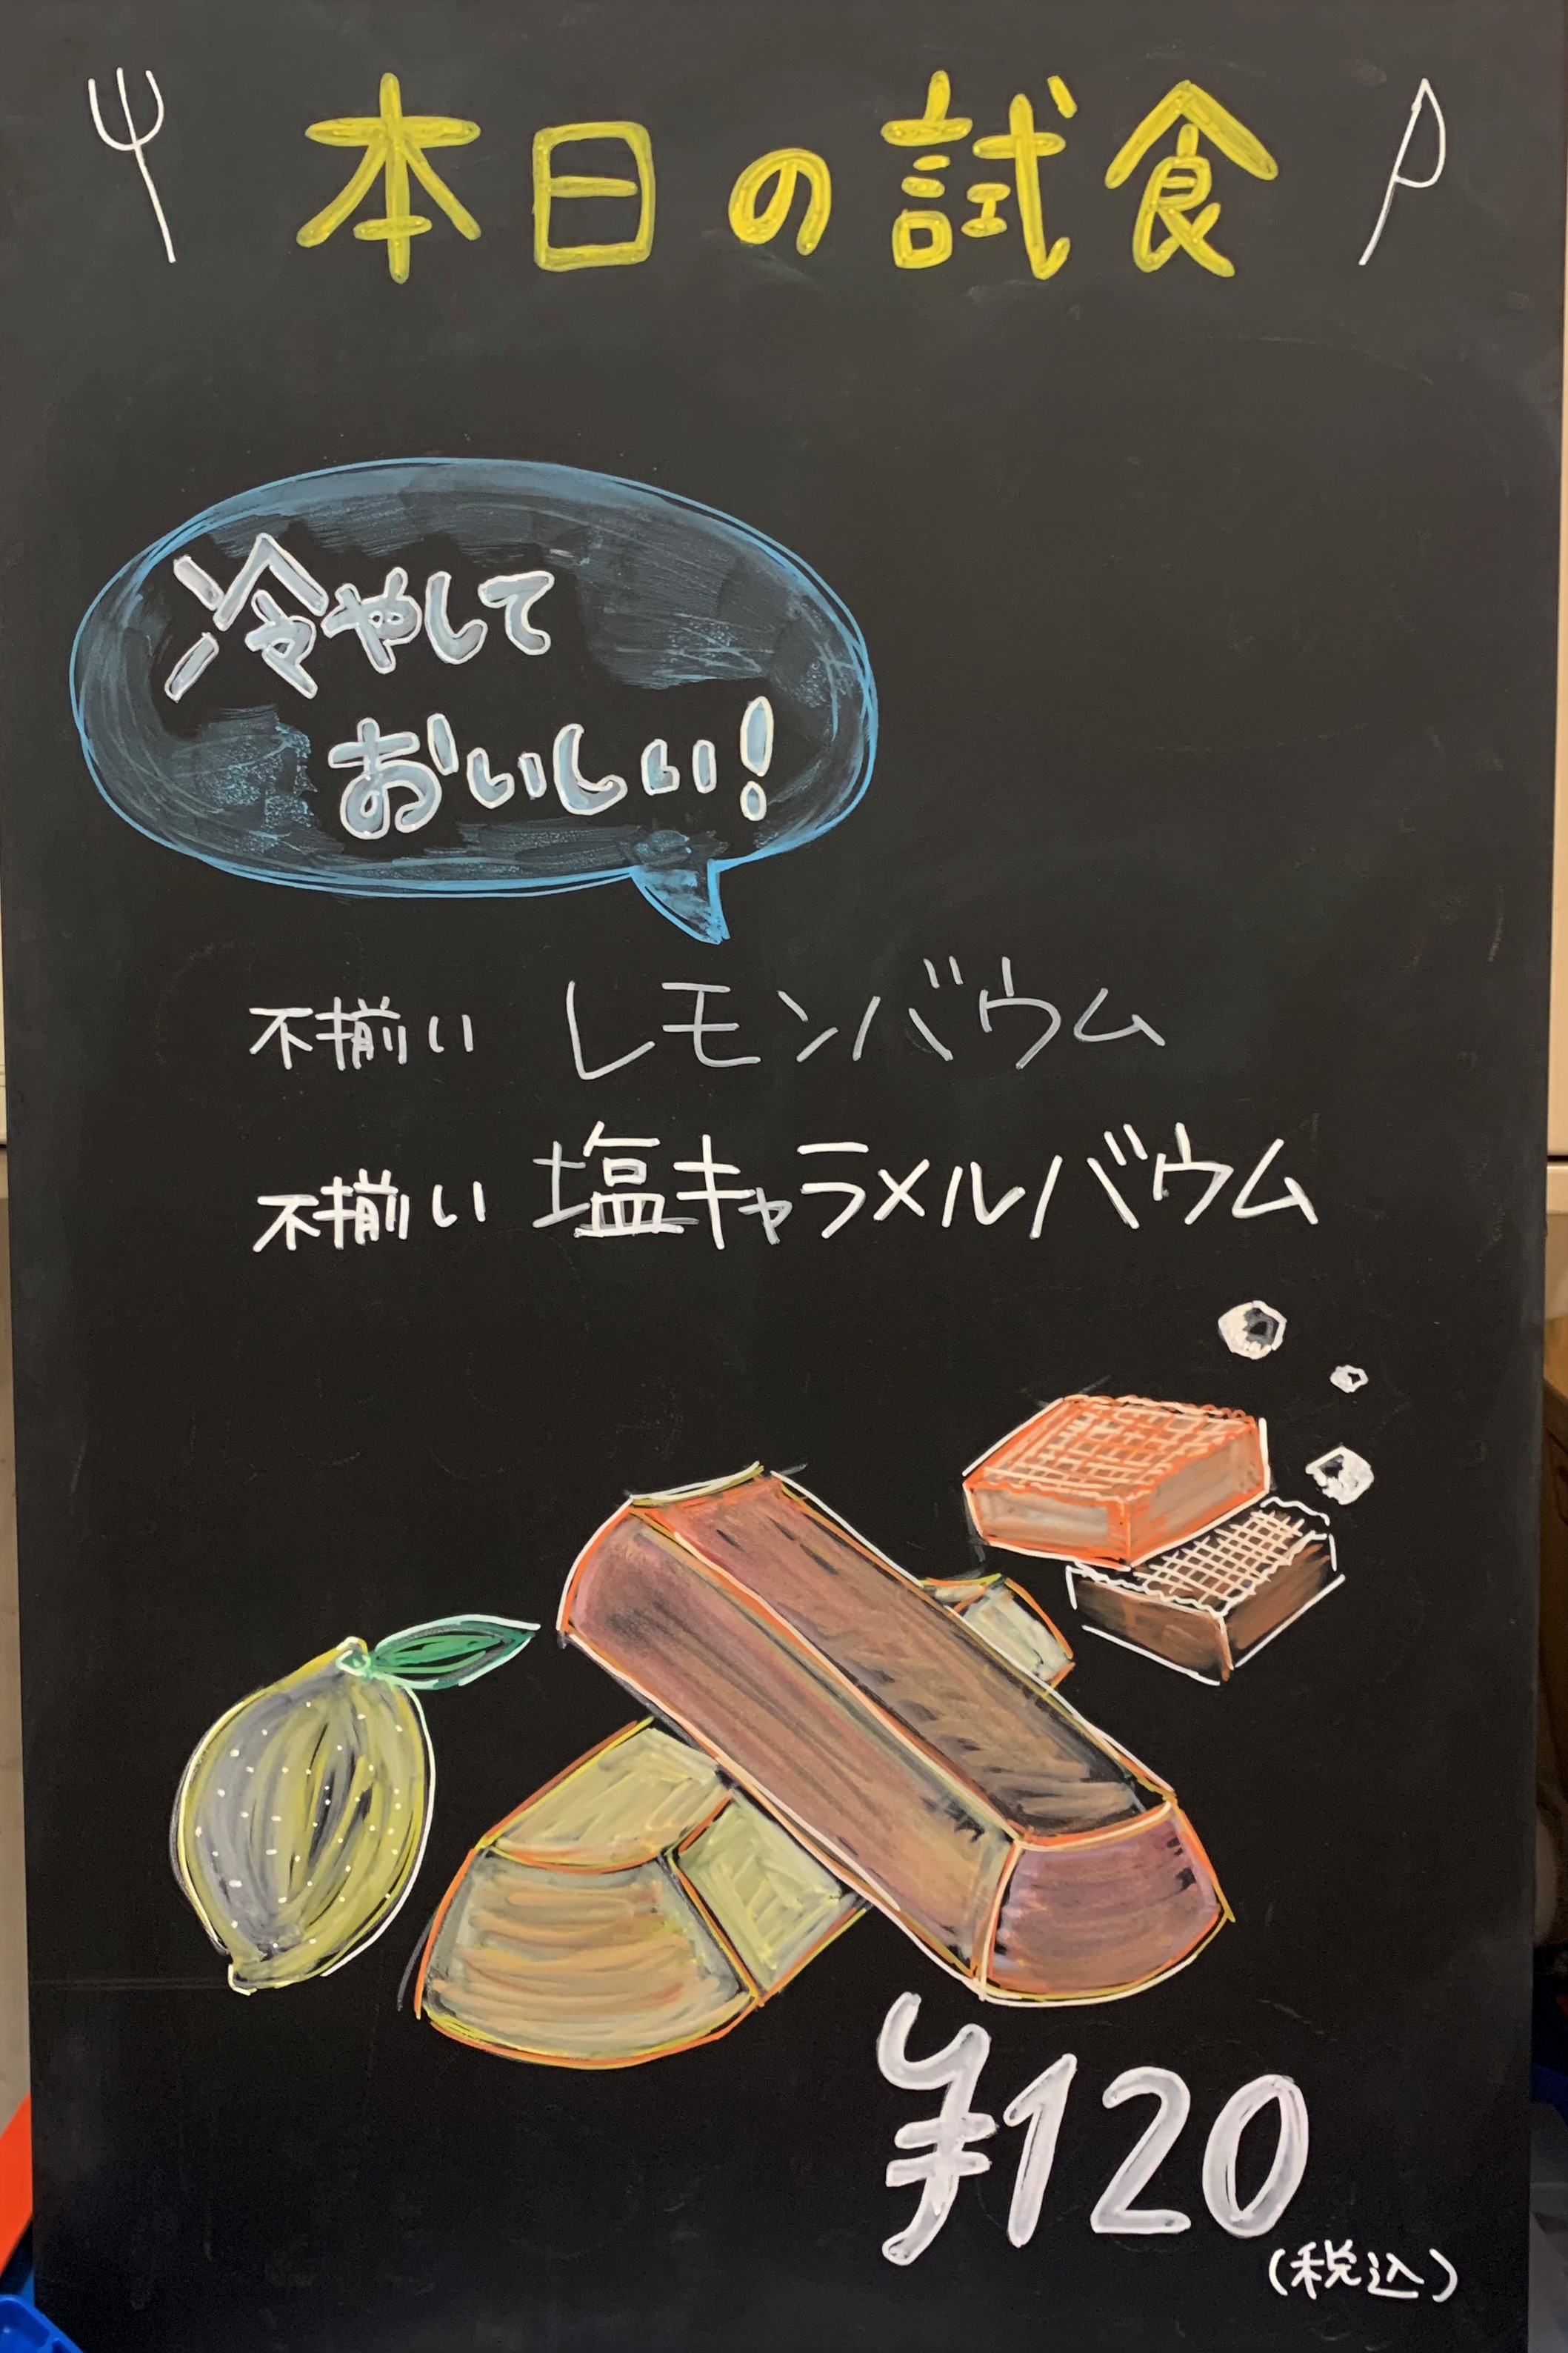 本日の試食
冷やして
おいしい!
不揃い レモンバウム
不揃い 塩キャラメルバウム
¥120
(税込)